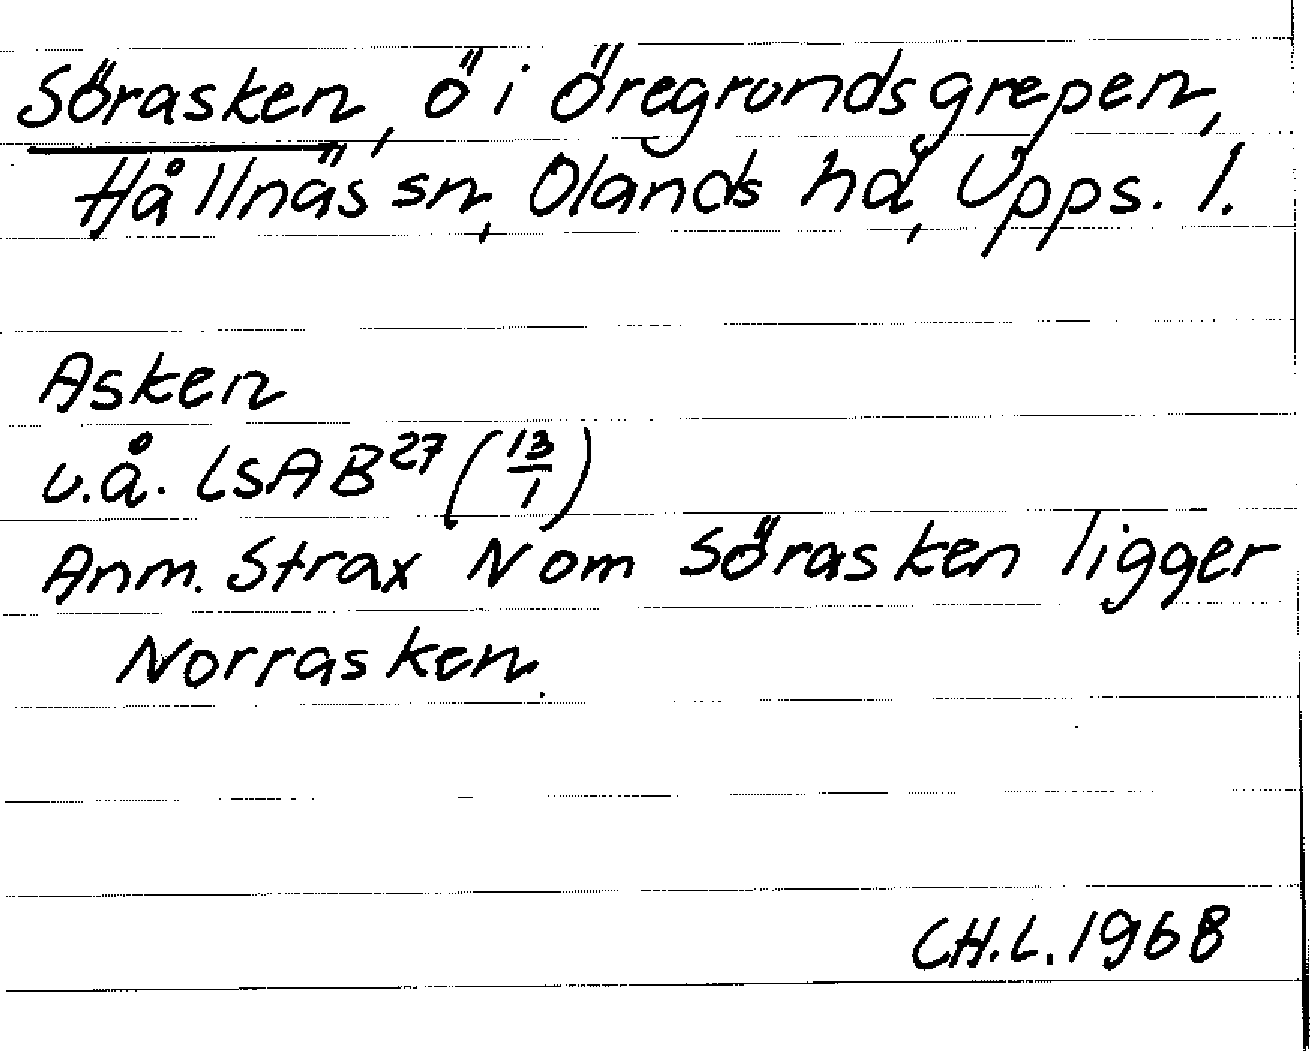 Sörasken, ö i Öregrundsgrepen,
Hållnäs sn, Olands hd, Upps. l.
Asken
u.å. LSA B27 (13/1)
Anm. Strax N om Sörasken ligger
Norrasken.
CH.L. 1968